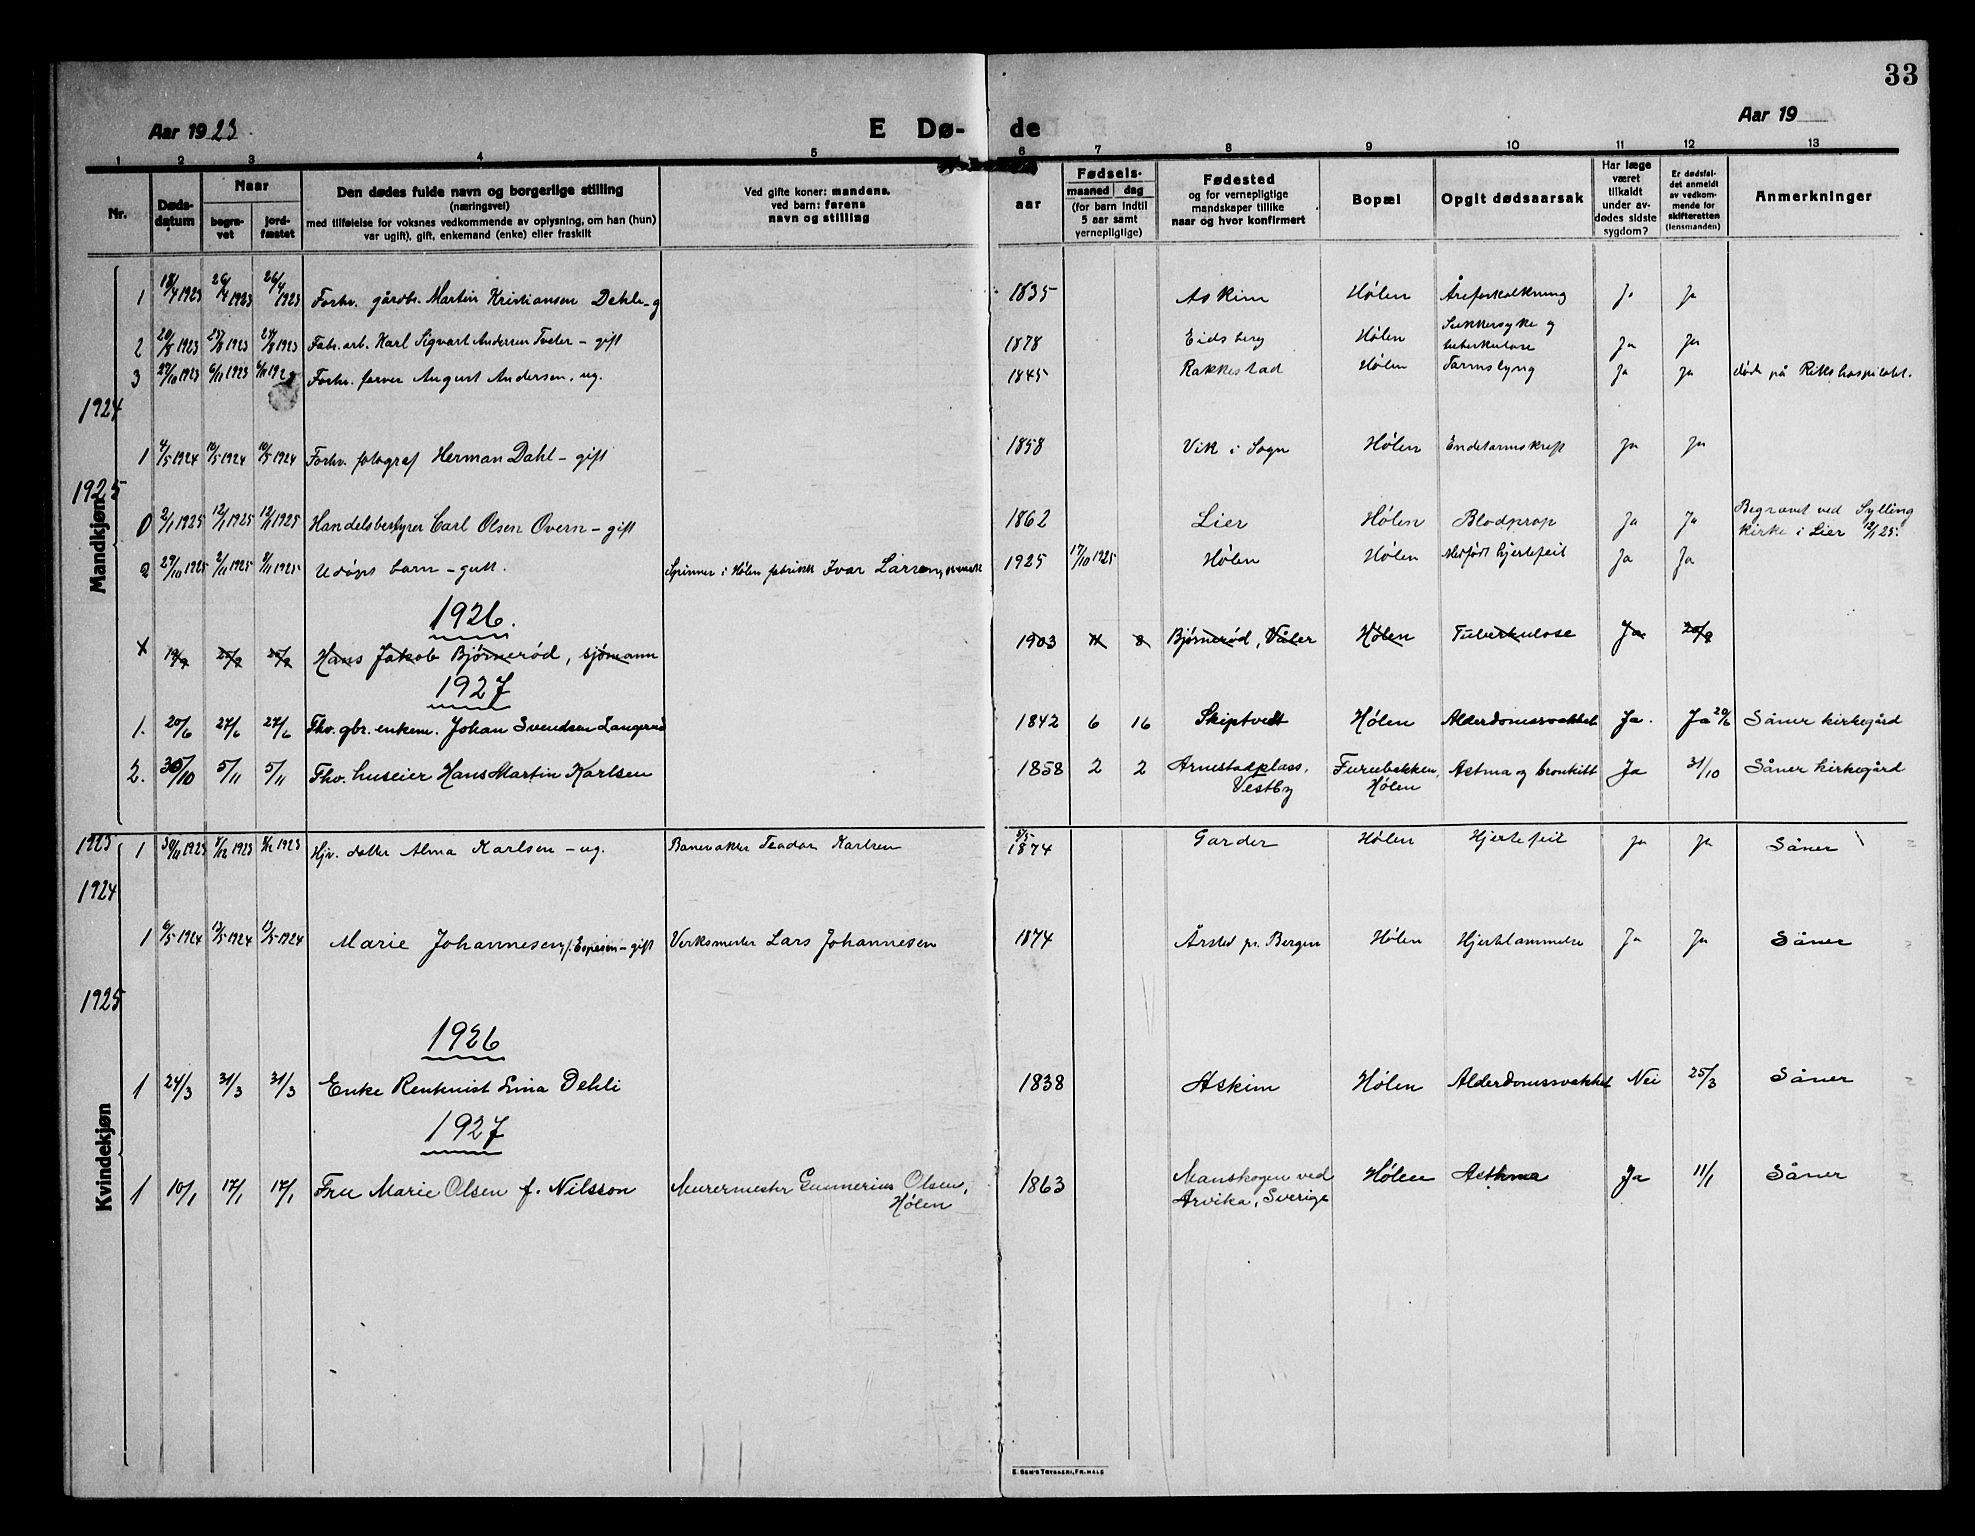 33
Aar 1923.
E Dø- de
Aar 19
1 2 3 4 5 6 7 8 9 10 11 12 13
Nr.
Døds-
datum
Naar
begra-
vet
jord-
fæstet
Den dødes fulde navn og borgerlige stilling
(næringsvei)
med tilføielse for voksnes vedkommende av oplysning, om han (hun)
var ugift), gift, enkemand (enke) eller fraskilt
Ved gifte koner: mandens,
ved barn: farens
navn og stilling
aar
Fødsels-
maaned dag
(for barn indtil
5 aar samt
vernepligtige)
Fødested
og for vernepligtige
mandskaper tillike
naar og hvor konfirmert
Bopæl
Opgit dødsaarsak
Har læge
været
tilkaldt
under av-
dødes sidste
sygdom?
Er dødsfal-
det anmeldt
av vedkom-
mende for
skifteretten
(lensmanden)
Anmerkninger
Mandkjøn
1 18/4 1923 26/4 1923 26/4 1923 Forhv. gårdbr. Martin Kristiansen Dehli-g 1835 Askim Hølen Åreforkalkning Ja Ja
2 20/8 1923 27/8 1923 27/8 1923 Fabr.arb. Karl Sigvart Andersen Tveter - gift 1878 Eidsberg Hølen Sukkersyke og
tuberkulose Ja Ja
3 27/10 1923 6/11 1923 6/11 192 Forhv. farver August Andersen, ug. 1845 Rakkestad Hølen Tarmslyng Ja Ja døde på Rikshospitalet.
1924
1 4/5 1924 10/5 1924 10/5 1924 Forhv. fotograf Herman Dahl - gift 1858 Vik i Sogn Hølen Endetarmskreft Ja Ja
1925
0 2/1 1925 12/1 1925 12/1 1925 Handelsbestyrer Carl Olsen Overn - gift 1862 Lier Hølen Blodprop Ja Ja Begravet ved Sylling
kirke i Lier 12/1 25.
2 29/10 1925 2/11 1925 2/11 1925 Udøpt barn - gutt. Spinner i Hølen fabrikk Ivar Larsen, 1925 17/10 1925 Hølen Hølen Medfødt hjertefeil Ja Ja
1926.
x 19/9 25/9 25/9 Hans Jakob Bjørnerød, sjømann 1903 11 8 Bjørnerød, Våler Hølen Tuberkulose Ja 20/9
1927
1. 20/6 27/6 27/6 Fhv. gbr. enkem. Johan Svendsen Langerud 1842 6 16 Skiptvedt Hølen Alderdomssvakhet Ja. Ja 20/6 Såner kirkegård
2. 30/10 5/11 5/11 Fhv. huseier Hans Martin Karlsen 1858 2 2 Arnestadplass,
Vestby Furubakken,
Hølen Astma og bronkitt Ja 31/10 Såner kirkegård
Kvindekjøn
1923 1 30/11 1923 7/12 1923 7/12 1923 Hjv. datter Alma Karlsen - ug. Banevakter Teodor Karlsen 5/5
1874 Garder Hølen Hjertefeil Ja Ja Såner
1924
1 6/5 1924 13/5 1924 13/5 1924 Marie Johannesen f. Espesen - gift Verksmester Lars Johannesen 1874 Årstad pr. Bergen Hølen Hjertelammelse Ja Ja Såner
1925
1926
1 24/3 31/3 31/3 Enke Rentenist Lina Dehli 1838 Askim Hølen Alderdomssvakhet Nei 25/3 Såner
1927
1 10/1 17/1 17/1 Fru Marie Olsen f. Nilsson Murermester Gunnerius Olsen,
Hølen 1863 Manskogen ved
Arvika, Sverige Hølen Asthma Ja 11/1 Såner
E. SEM'S TRYKKERI, FR.HALD